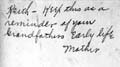 Keith - Keep this as a
reminder of your
Grandfathers Early life
Mother.